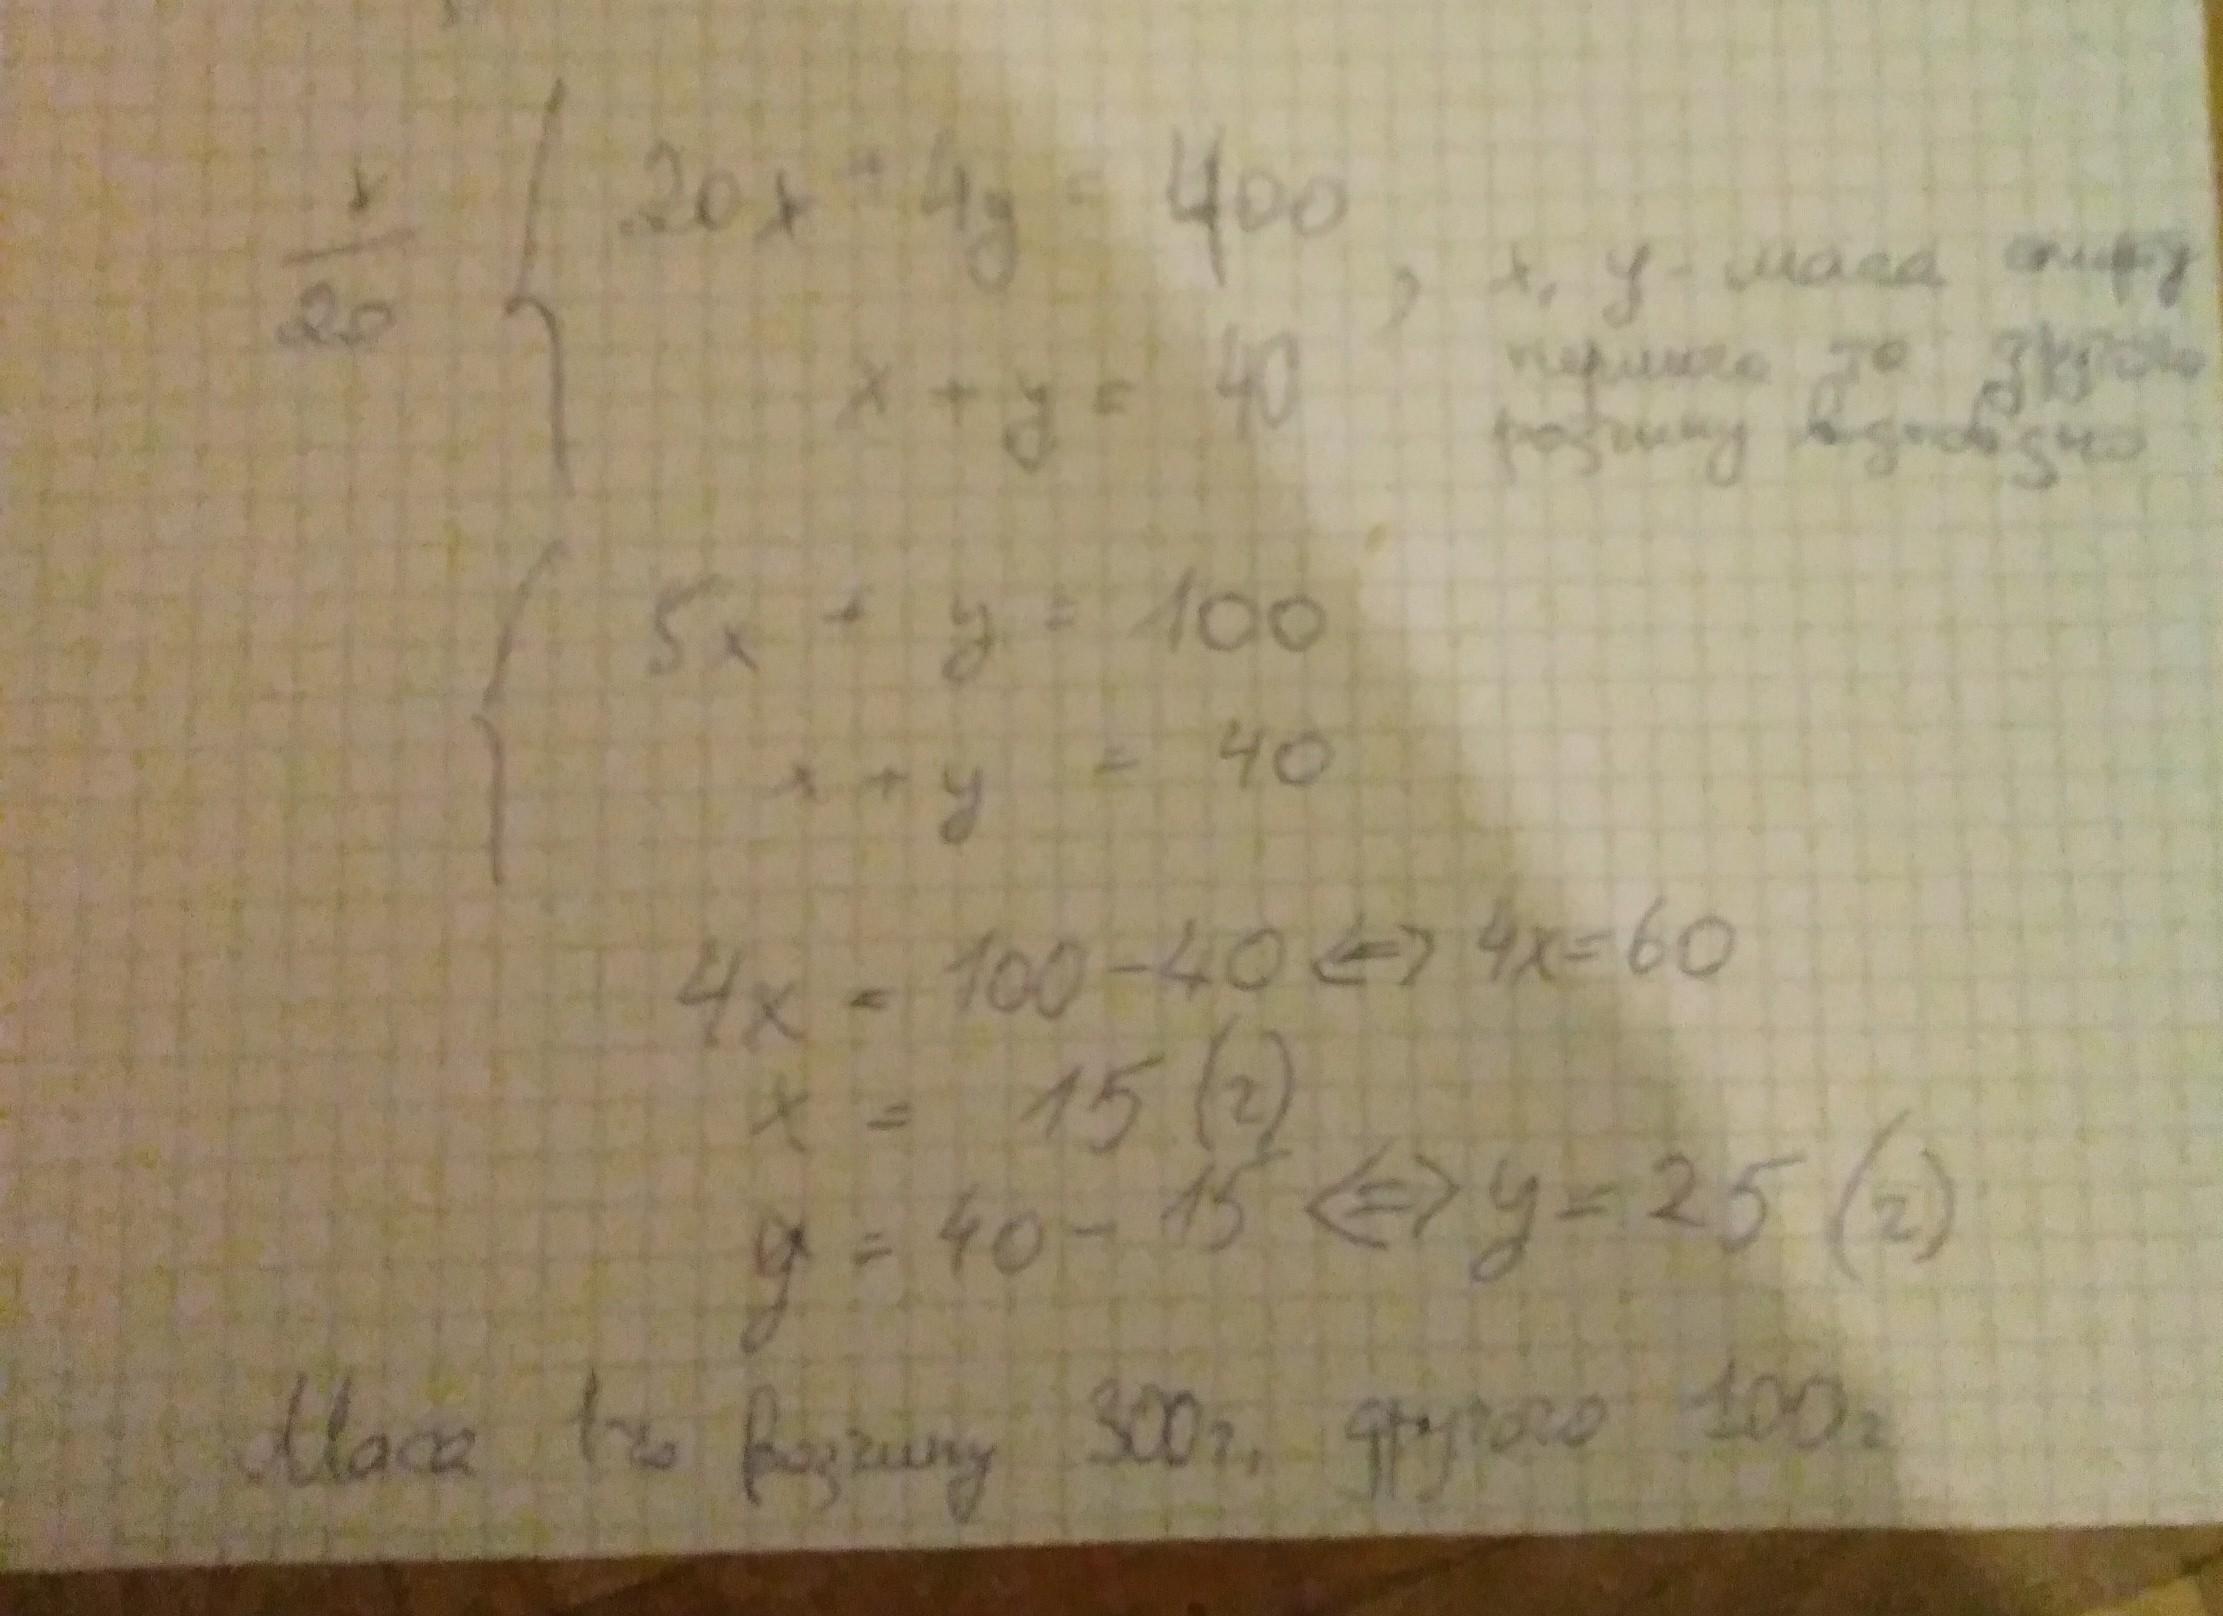 x
20
20x + 4y = 400
x + y = 40
, x, y - маса спирту
першого та другого
розчину відповідно
5x + y = 100
x + y = 40
4x = 100 - 40 <=> 4x = 60
x = 15 (г)
y = 40 - 15 <=> y = 25 (г)
Маса 1го розчину 300г, другого 100г